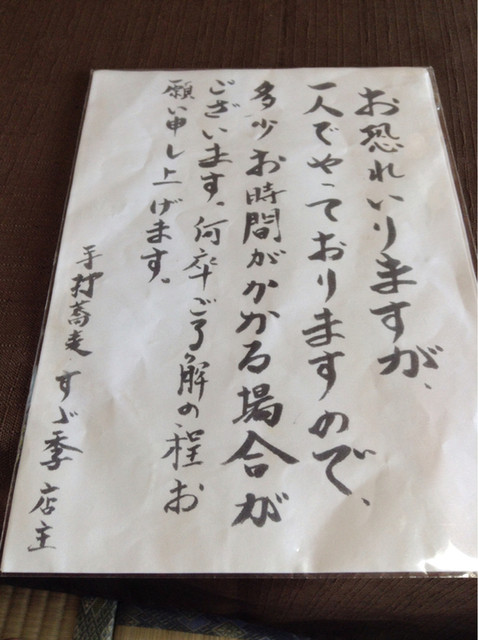 お恐れいりますが、
一人でやっておりますので、
多少お時間がかかる場合が
ございます。何卒ご了解の程お
願い申し上げます。
手打蕎麦 すゞ季 店主